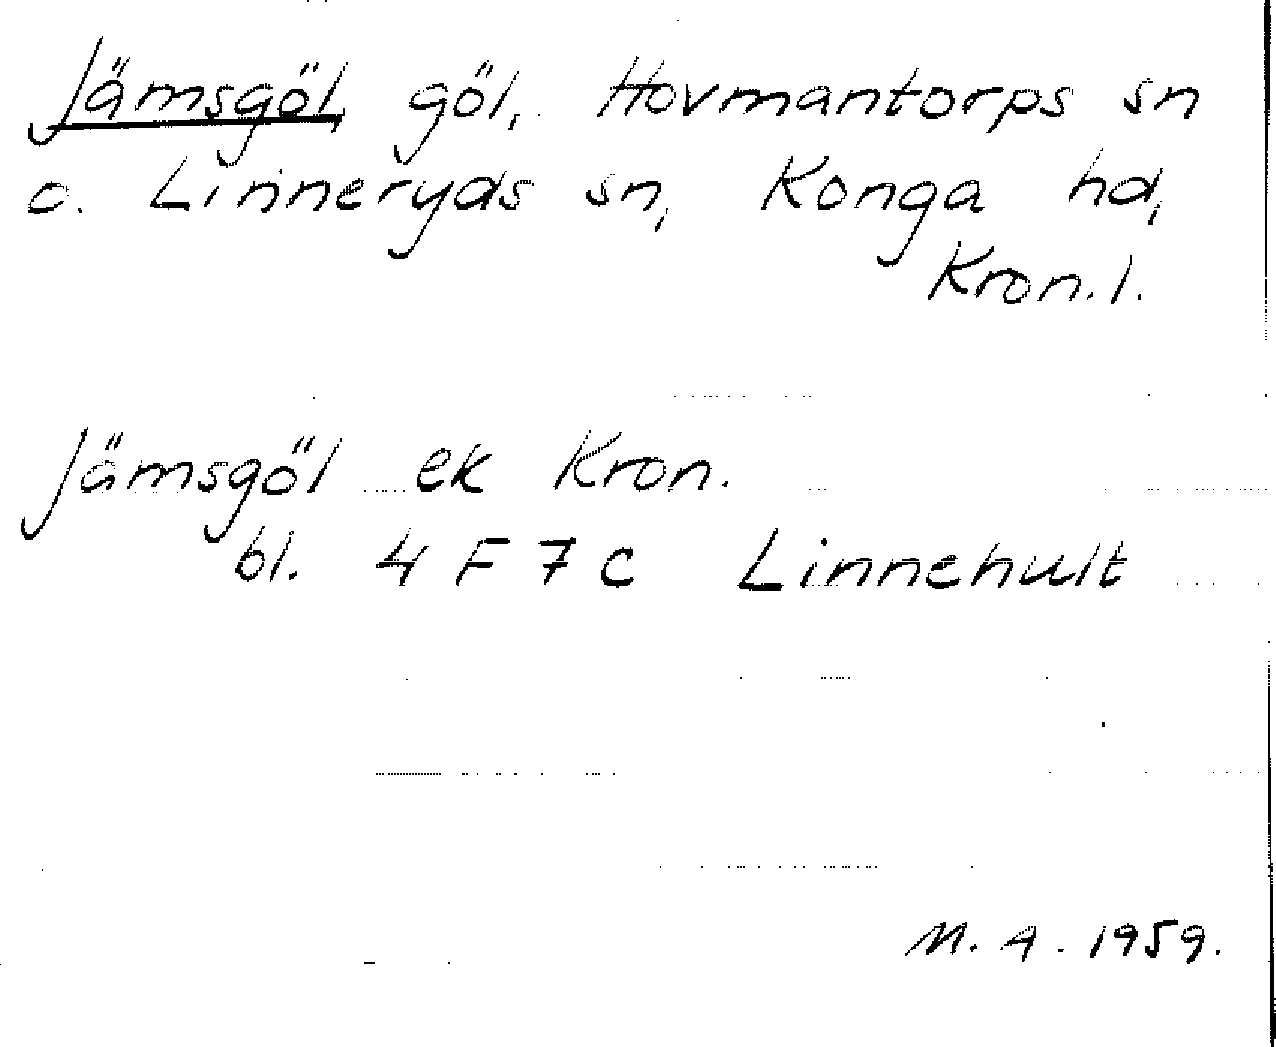 Jämsgöl, göl, Hovmantorps sn
o. Linneryds sn, Konga hd,
Kron.l.
Jämsgöl ek Kron.
bl. 4 F 7 c Linnehult
M. A. 1959.